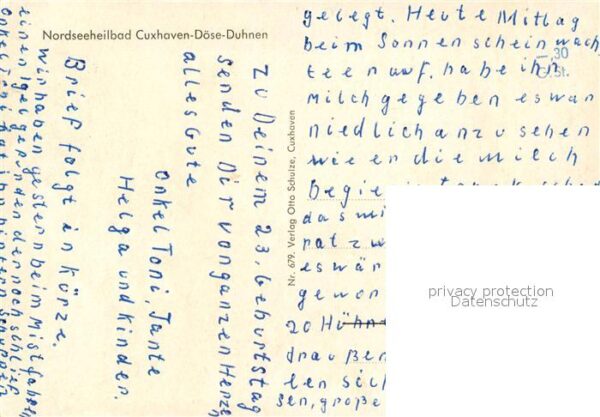 Nordseeheilbad Cuxhaven-Döse-Duhnen
Zu Deinem 23. Geburtstag
senden Dir von ganzen Herzen
alles Gute
Onkel Toni, Tante
Helga und Kinder.
Brief folgt in Kürze.
Wir haben gestern beim Mistfahren
einen Igel gefunden der noch schlief
Onkel Toni hat ihn hintern Schuppen
gelegt. Heute Mittag
beim Sonnenschein wach
te er auf. habe ihn
Milch gegeben es war
niedlich anzusehen
wie er die Milch
Begie
das mi
rat zw
es wär
gewor
20 Hühn
draußen
len sich
sen, große
-,30
Nr. 679. Verlag Otto Schulze, Cuxhaven
privacy protection
Datenschutz